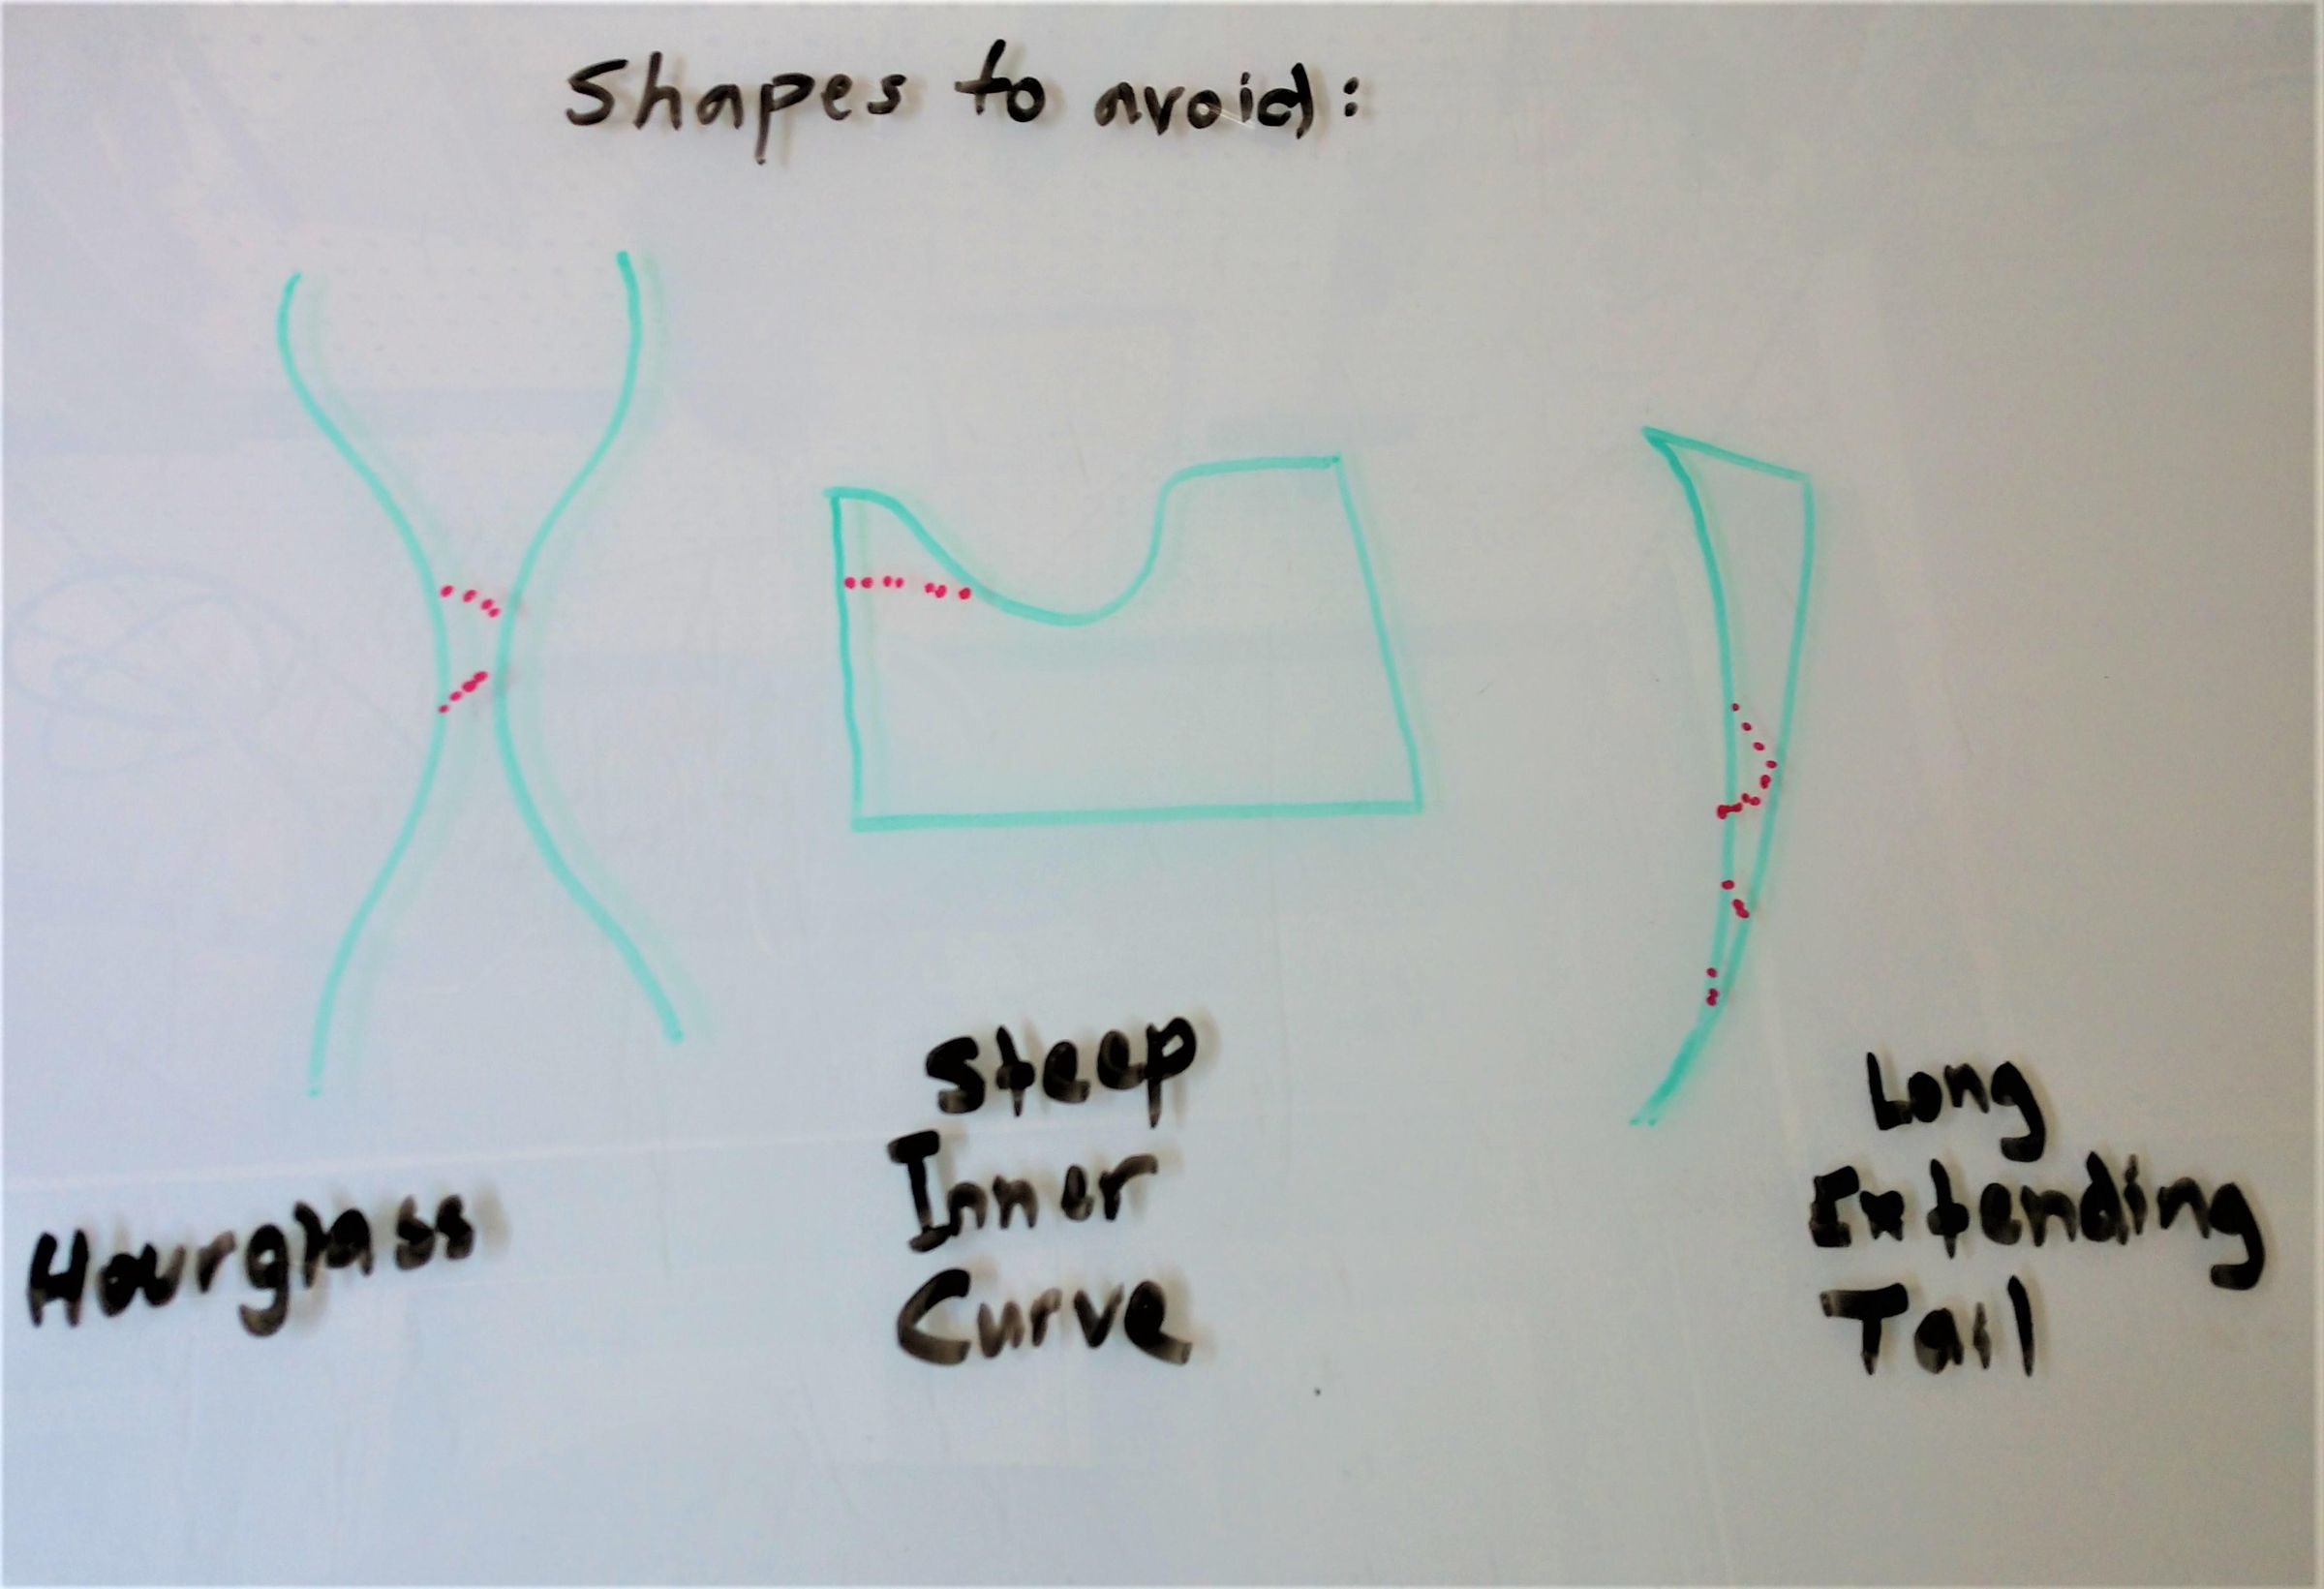 Shapes to avoid:
Hourglass
Steep
Inner
Curve
Long
Extending
Tail